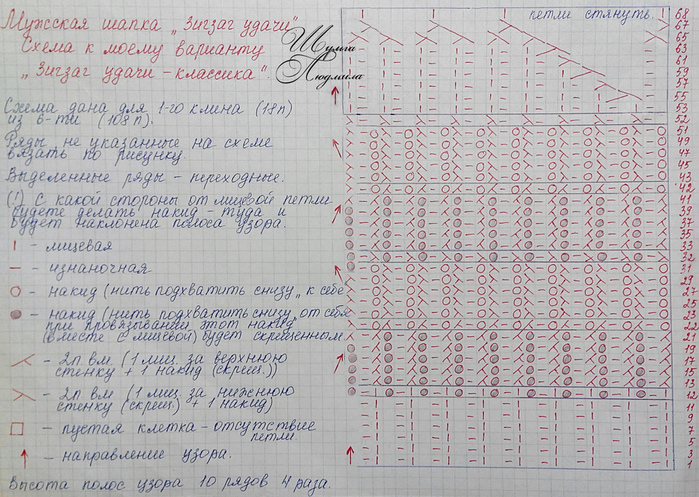 Мужская шапка „Зигзаг удачи"
Схема к моему варианту
„Зигзаг удачи – классика".
Шульга
Людмила
Схема дана для 1-го клина (18п)
из 6-ти (108п).
Ряды, не указанные на схеме
вязать по рисунку.
Выделенные ряды – переходные.
(!) С какой стороны от лицевой петли
будете делать накид – туда и
будет наклонена полоса узора.
– лицевая
– изнаночная
– накид (нить подхватить снизу „к себе"
– накид (нить подхватить снизу „от себя"
при провязывании этот накид
(вместе с лицевой) будет скрещенным
– 2п вм (1 лиц. за верхнюю
стенку + 1 накид (скрещ.))
– 2п вм (1 лиц за нижнюю
стенку (скрещ) + 1 накид)
– пустая клетка – отсутствие
петли.
– направление узора.
Высота полос узора 10 рядов 4 раза.
петли стянуть.
68
67
65
63
61
59
57
55
53
52
51
49
47
45
43
42
41
39
37
35
33
32
31
29
27
25
23
22
21
19
17
15
13
12
11
9
7
5
3
1